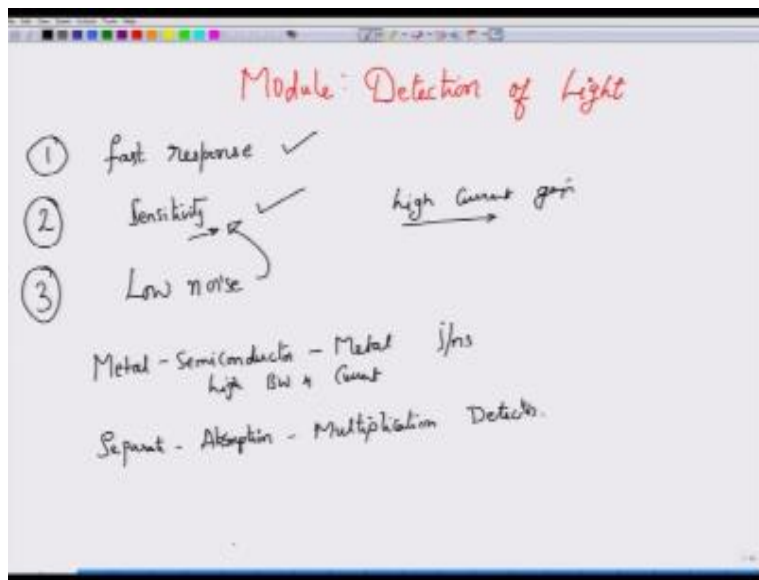 Module: Detection of Light
1 fast response
2 Sensitivity high Current gain
3 Low noise
Metal - Semiconductor - Metal j/ns
high BW & Current
Separat - Absorption - Multiplication Detector.